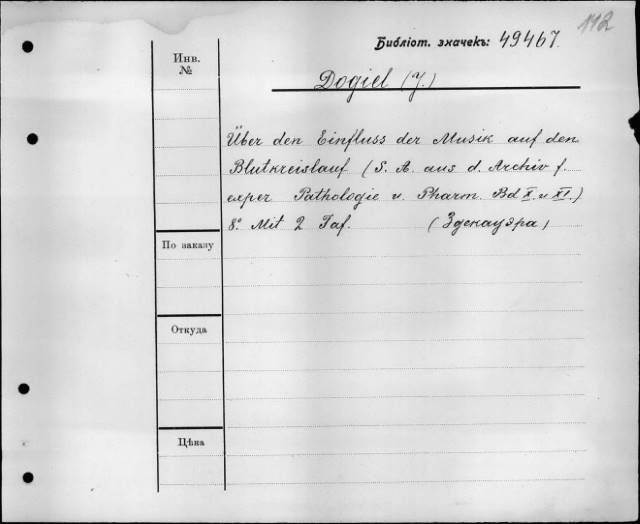 112
Библіот. значекъ: 49467.
Инв.
№
Dogiel (J.)
Über den Einfluss der Musik auf den
Blutkreislauf (S. A. aus d. Archiv f.
exper Pathologie u. Pharm. Bd X. u XI.)
8º Mit 2 Taf. (Здекауэра)
По заказу
Откуда
Цѣна